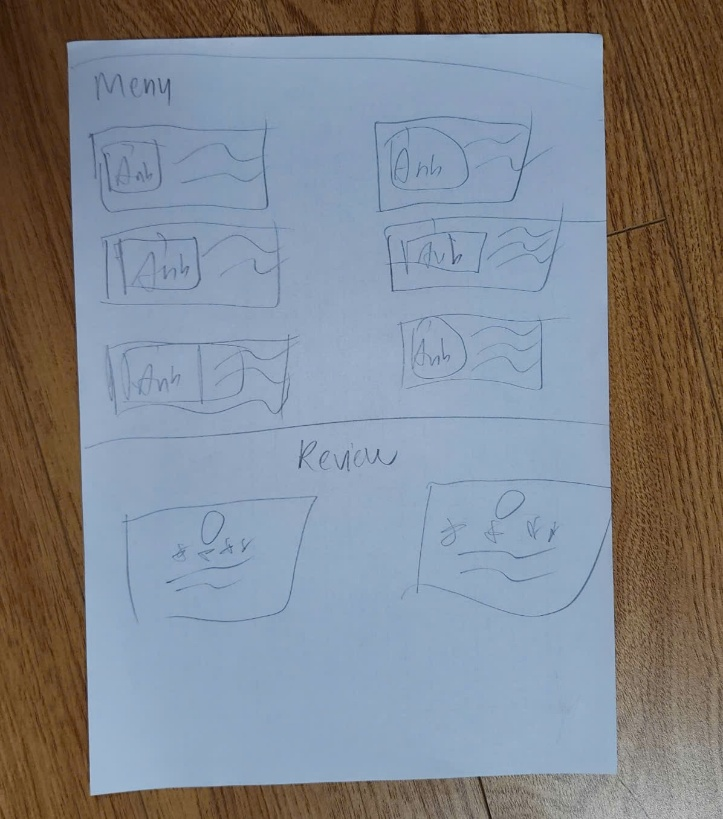 Menu
Anh Anh
Anh Anh
Anh Anh
Review